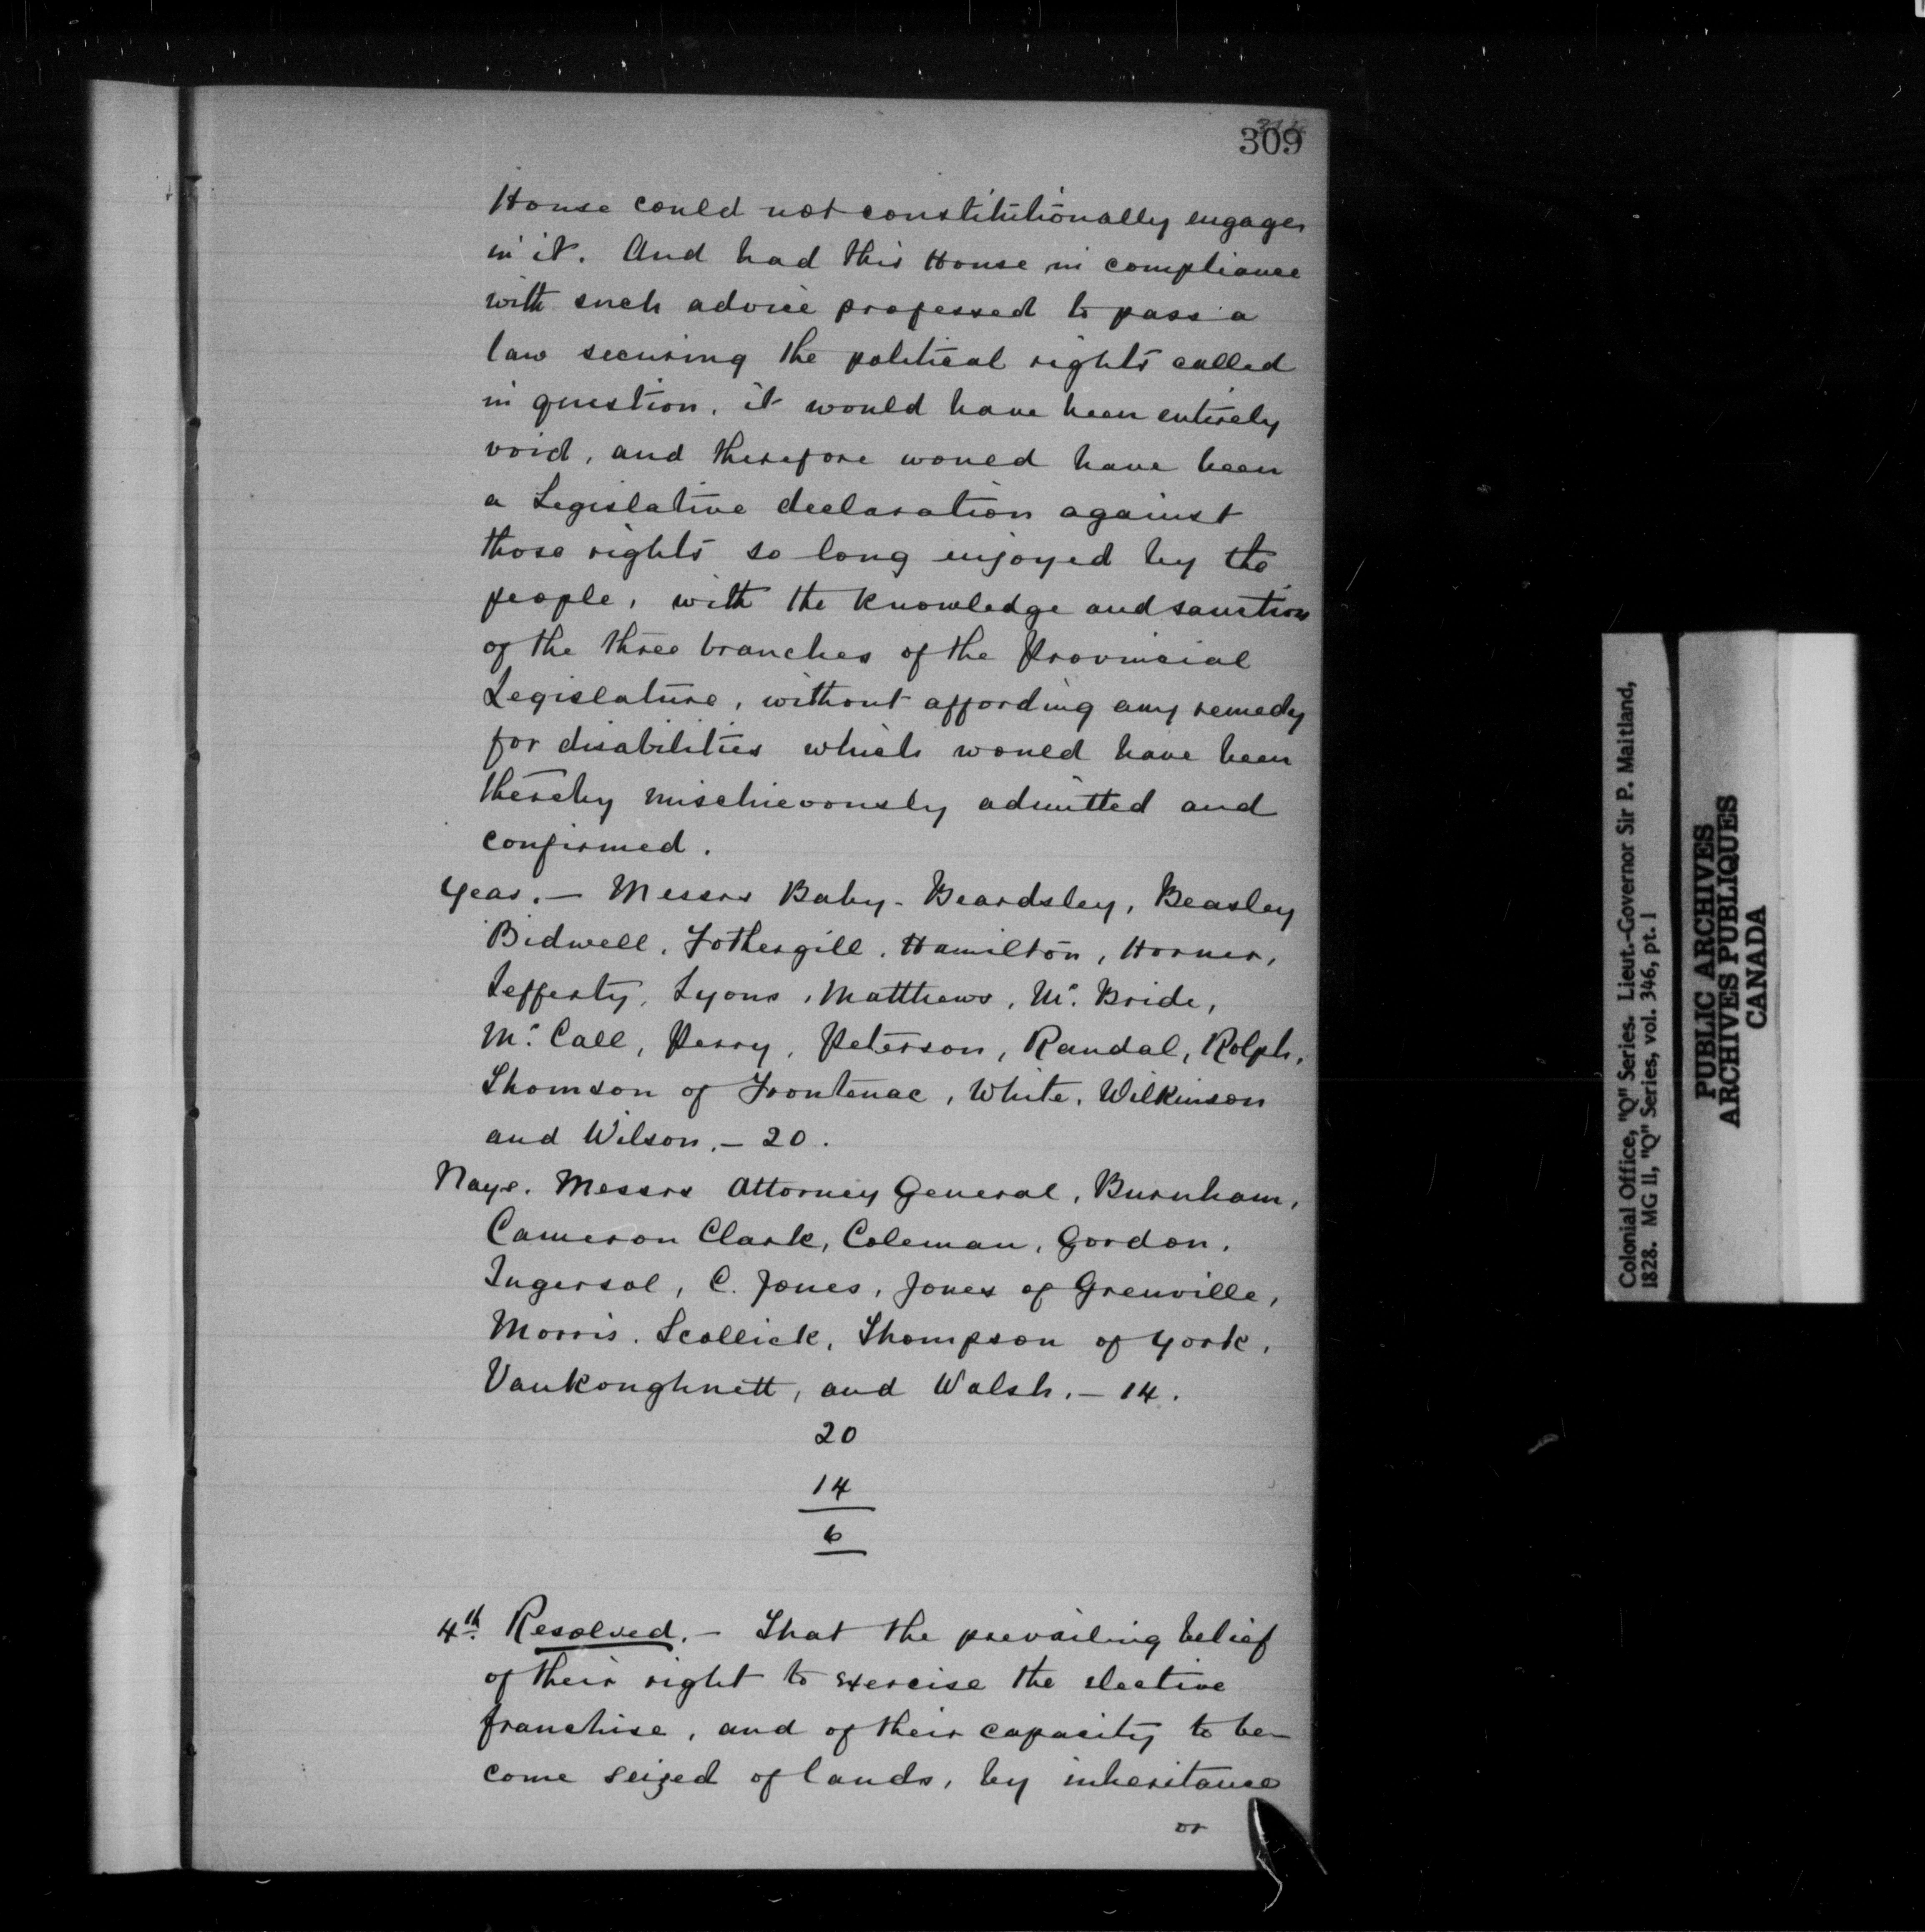 309
House could not constitutionally engage
in it. And had this House in compliance
with such advice professed to pass a
law securing the political rights called
in question, it would have been entirely
void, and therefore would have been
a Legislative declaration against
those rights so long enjoyed by the
people, with the knowledge and sanction
of the three branches of the Provincial
Legislature, without affording any remedy
for disabilities which would have been
thereby mischievously admitted and
confirmed.
Yeas. — Messrs Baby - Beardsley, Beasley
Bidwell, Fothergill, Hamilton, Horner,
Lefferty, Lyons, Matthews, Mc. Bride,
Mc. Call, Perry, Peterson, Randal, Rolph,
Thomson of Frontenac, White, Wilkinson
and Wilson. — 20.
Nays. Messrs Attorney General, Burnham,
Cameron Clark, Coleman, Gordon,
Ingersol, C. Jones, Jones of Grenville,
Morris. Scollick, Thompson of York,
VanKoughnett, and Walsh. — 14.
20
14
6
4th. Resolved. — That the prevailing belief
of their right to exercise the elective
franchise, and of their capacity to be-
come seized of lands, by inheritance
or
Colonial Office, "Q" Series. Lieut.-Governor Sir P. Maitland,
1828. MG II, "Q" Series, vol. 346, pt. I
PUBLIC ARCHIVES
ARCHIVES PUBLIQUES
CANADA